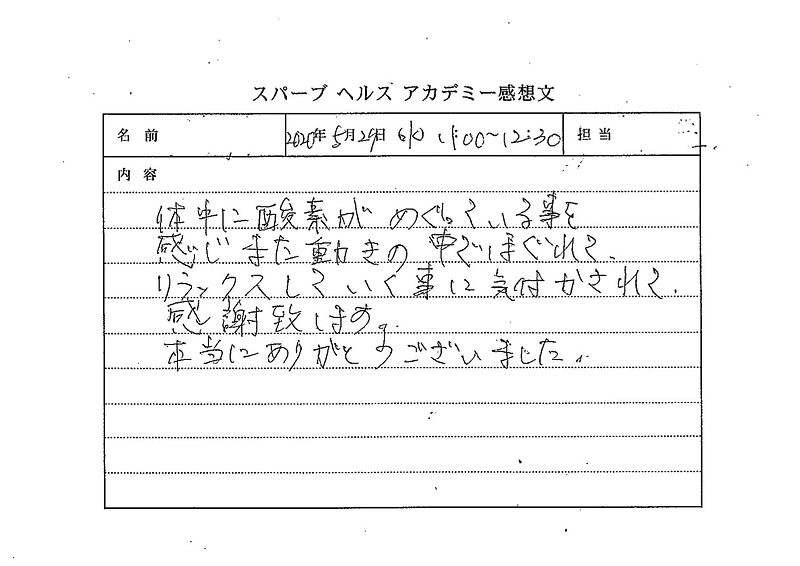 スパーブ ヘルス アカデミー感想文
名 前 2020年5月29日 (水) 11:00~12:30 担 当
内 容
体中に酸素がめぐっている事を
感じまた動きの中でほぐれて、
リラックスしていく事に気付かされて、
感謝致します。
本当にありがとうございました。